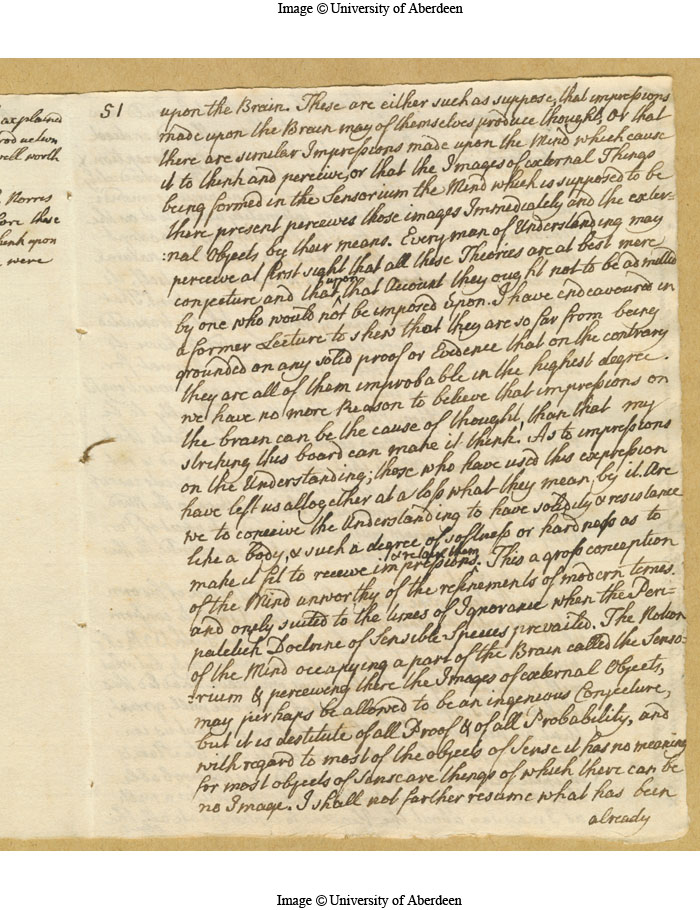 Image © University of Aberdeen
explained
roduction
well worth
Norris
fore these
think upon
were
51
upon the Brain. These are either such as suppose, that impressions
made upon the Brain may of themselves produce thought, or that
there are similar Impressions made upon the Mind which cause
it to think and perceive, or that the Images of external Things
being formed in the Sensorium the Mind which is supposed to be
there present perceives those images Immediately and the exter-
:nal Objects by their means. Every man of Understanding may
perceive at first sight that all these Theories are at best mere
conjecture and that upon that Account they ought not to be admitted
by one who would not be imposed upon. I have endeavoured in
a former Lecture to shew that they are so far from being
grounded on any solid proof or Evidence that on the contrary
they are all of them improbable in the highest degree.
we have no more Reason to believe that impressions on
the brain can be the cause of thought, than that my
striking this board can make it think. As to impressions
on the Understanding; those who have used this expression
have left us altogether at a loss what they mean by it. Are
we to conceive the Understanding to have solidity & resistance
like a body, & such a degree of softness or hardness as to
make it fit to receive impressions & retain them. This a gross conception
of the Mind unworthy of the refinements of modern times.
and only suited to the times of Ignorance when the Peri-
patetick Doctrine of Sensible Species prevailed. The Notion
of the Mind occupying a part of the Brain called the Senso-
:rium & perceiving there the Images of external Objects,
may perhaps be allowed to be an ingenious Conjecture,
but it is destitute of all Proof & of all Probability, and
with regard to most of the objects of Sense it has no meaning
for most objects of Sense are things of which there can be
no Image. I shall not farther resume what has been
already
Image © University of Aberdeen